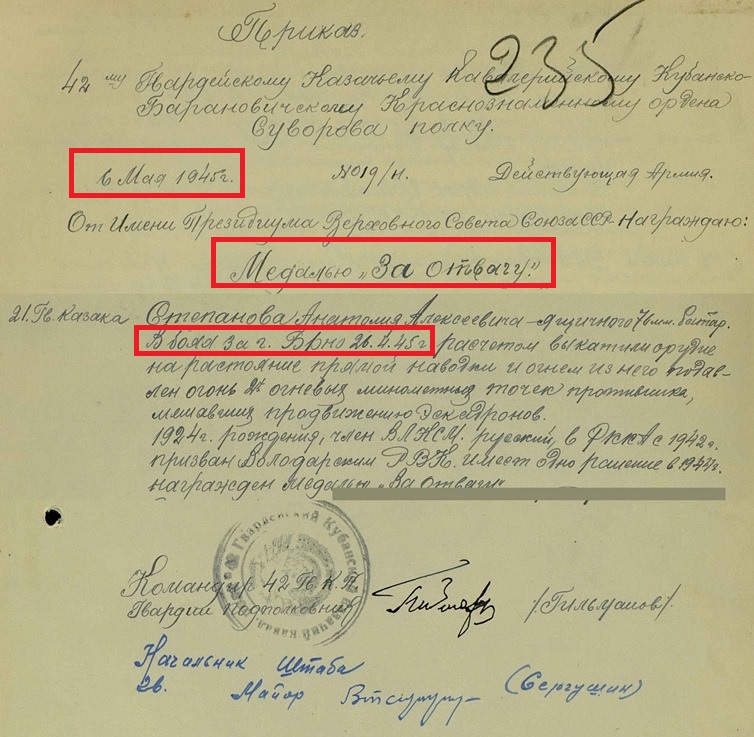 Приказ.
235
42му Гвардейскому Казачьему Кавалерийскому Кубанско-
Барановичскому Краснознаменному ордена
Суворова полку.
6 Мая 1945г. №019/н. Действующая Армия.
От Имени Президиума Верховного Совета Союза ССР- Награждаю:
Медалью „За отвагу."
21. Гв. Казака Степанова Анатолия Алексеевича - ящичного 76 мм. батар.
В боях за г. Брно 26.4.45г расчетом выкатили орудие
на растояние прямой наводки и огнем из него подав-
лен огонь 2х огневых минометных точек противника,
мешавших продвижению эскадронов.
1924г. рождения, член ВЛКСМ. русский, в РККА с 1942г.
призван Володарским РВК. имеет одно ранение в 1944г.
награжден медалью „За Отвагу"
Гвардейский Кубанский
Командир 42 Гв. К. П.
Гвардии Подполковник /Гильманов/.
Начальник Штаба
гв. Майор (Сергушин)